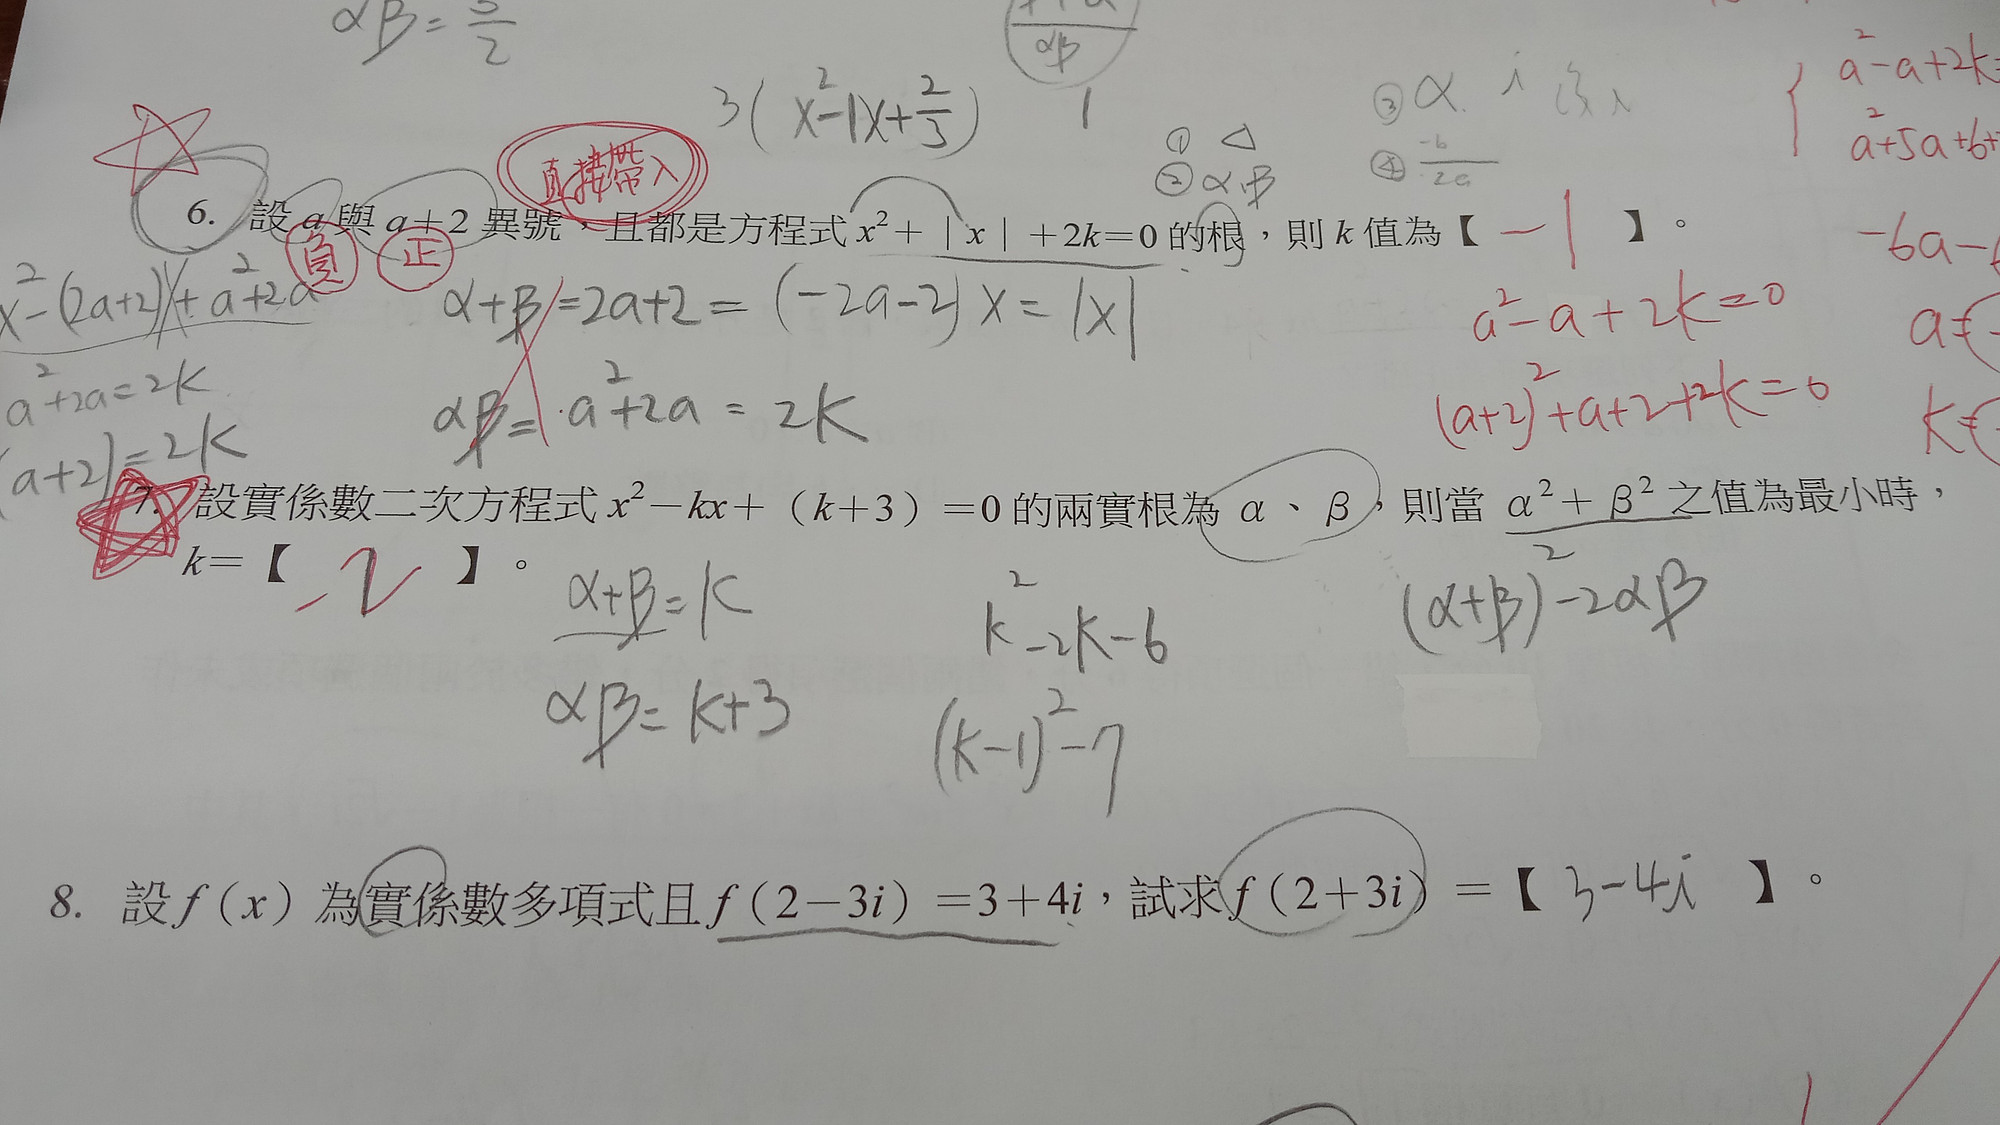 αβ=
2
αβ
3(x²-1x+2/3)
1
① △
② α,β
③ α i
④ -b/2a
a²-a+2k=
a²+5a+6+
直接帶入
6. 設 a 與 a+2 異號，且都是方程式 x²+|x|+2k=0 的根，則 k 值為【 -1 】。
負 正
-6a-6
x²-(2a+2)x+a²+2a
α+β=2a+2=(-2a-2)x=|x|
a²-a+2k=0
a=
a²+2a=2k
αβ=a²+2a=2k
(a+2)²+a+2+2k=0
k=
(a+2)=2k
7. 設實係數二次方程式 x²-kx+(k+3)=0 的兩實根為 α、β，則當 α²+β² 之值為最小時，
k=【 -2 】。
α+β=k
k²-2k-6
(α+β)²-2αβ
αβ=k+3
(k-1)²-7
8. 設 f(x) 為實係數多項式且 f(2-3i)=3+4i，試求 f(2+3i)=【 3-4i 】。